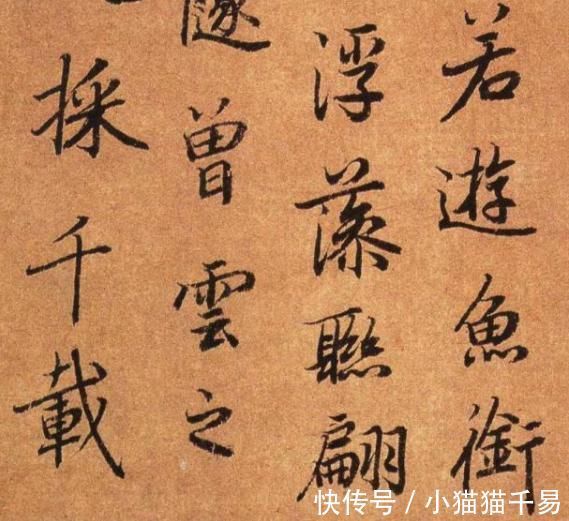 若遊魚銜
浮藻聯翩
隧曾雲之
採千載
快传号 / 小猫猫千易